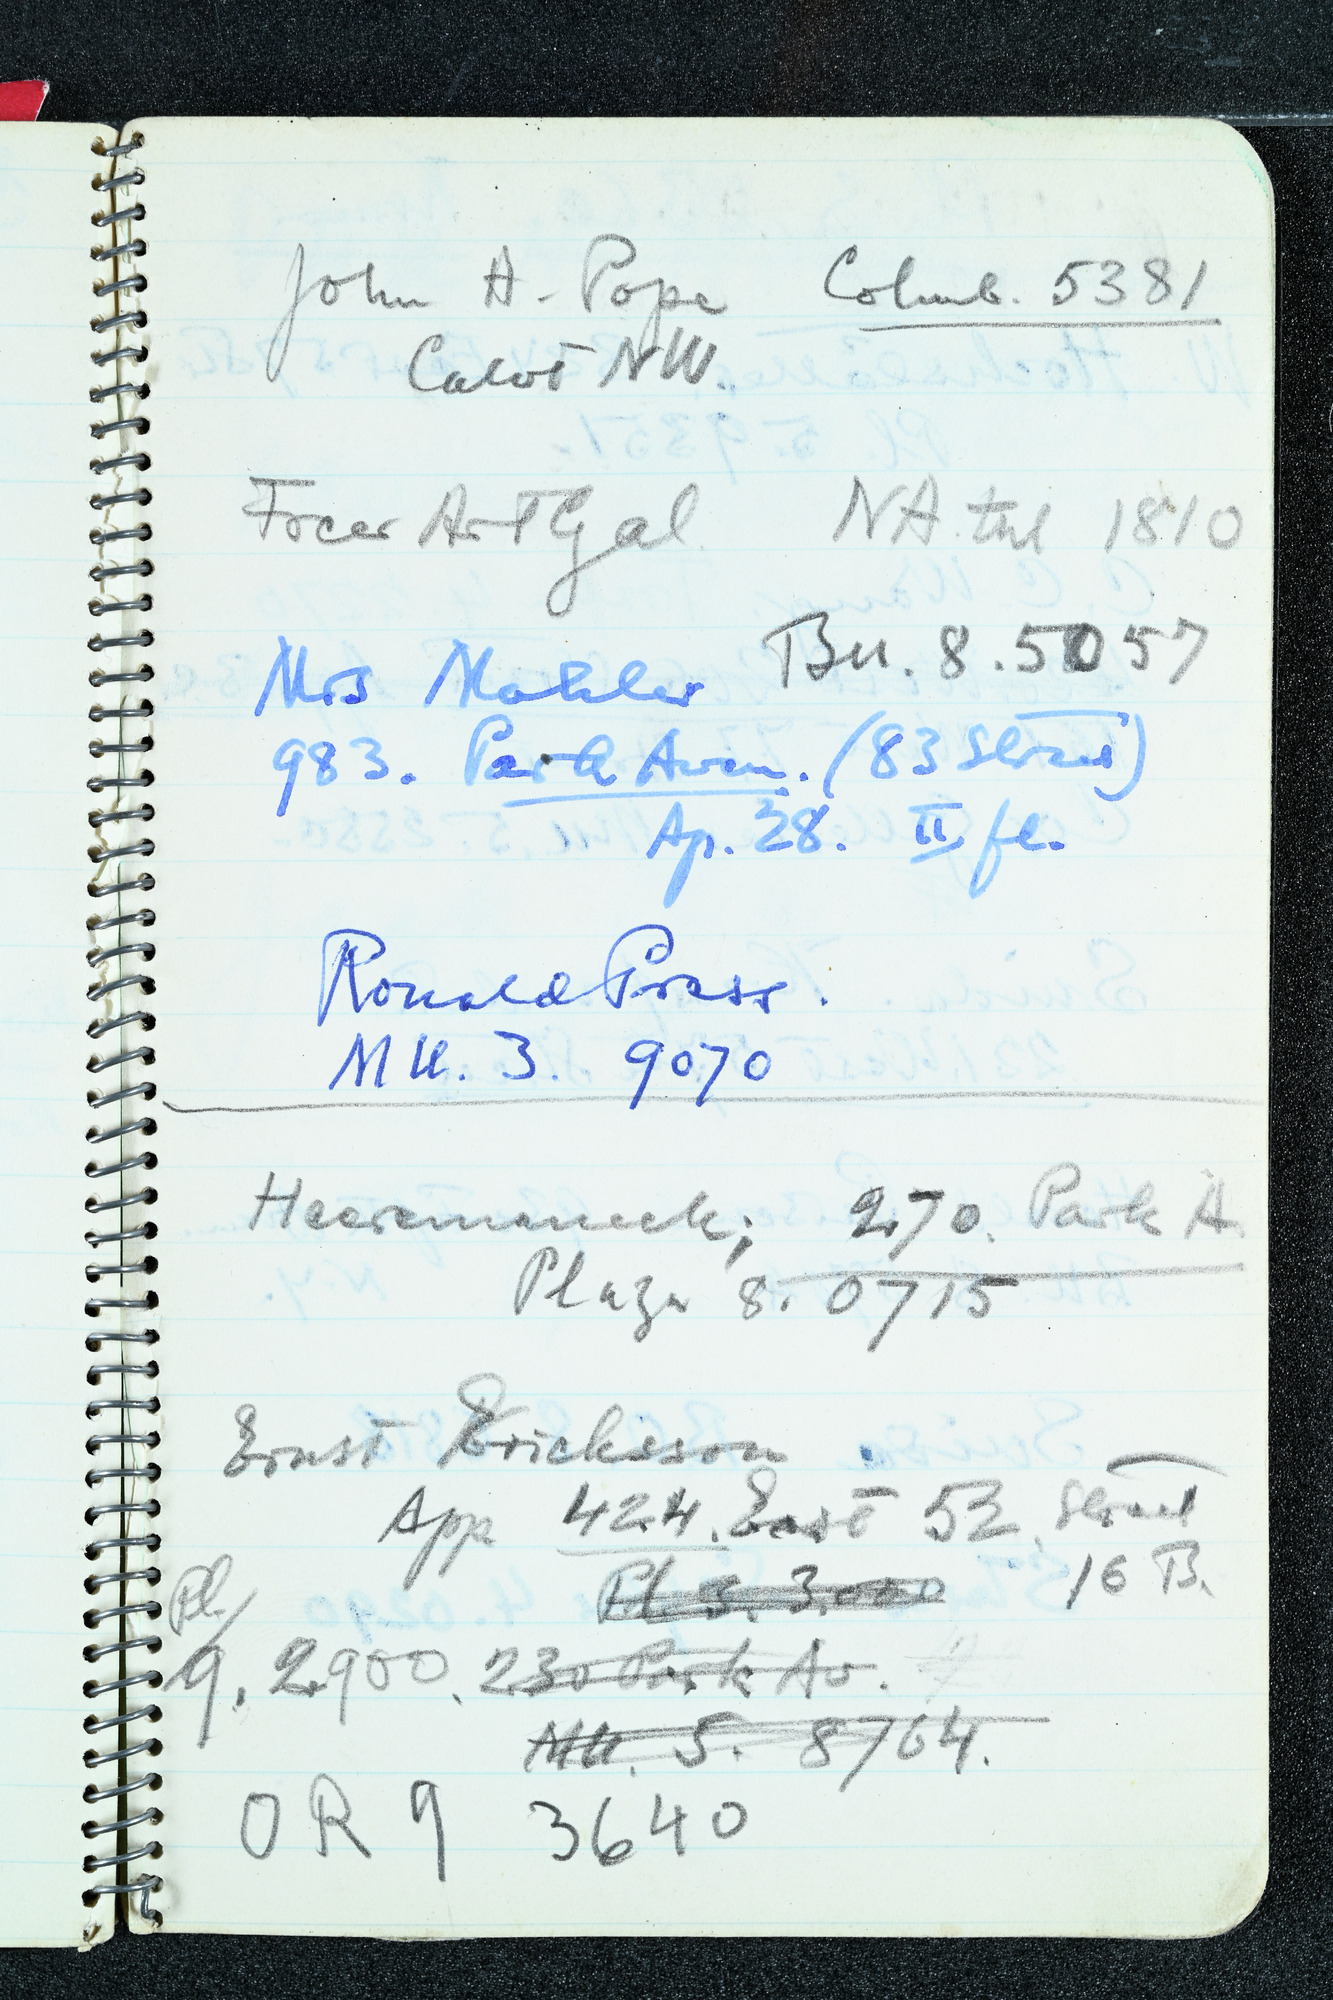 John A. Pope Columb. 5381
Calvt NW.
Freer Art Gal. NA. tnl 1810
Bu. 8.5057
Mrs Mahler
983. Park Aven. (83 Street)
Ap. 28. II fl.
Ronald Press.
MU. 3. 9070
Heeramaneck; 270. Park A.
Plaza 8. 0715
Ernst Erickson
App 424. East 52. Street
16 B.
Pl. 3. 3.000
Pl/
9. 2900. 230 Park Av.
MU. 5. 8764.
OR 9 3640